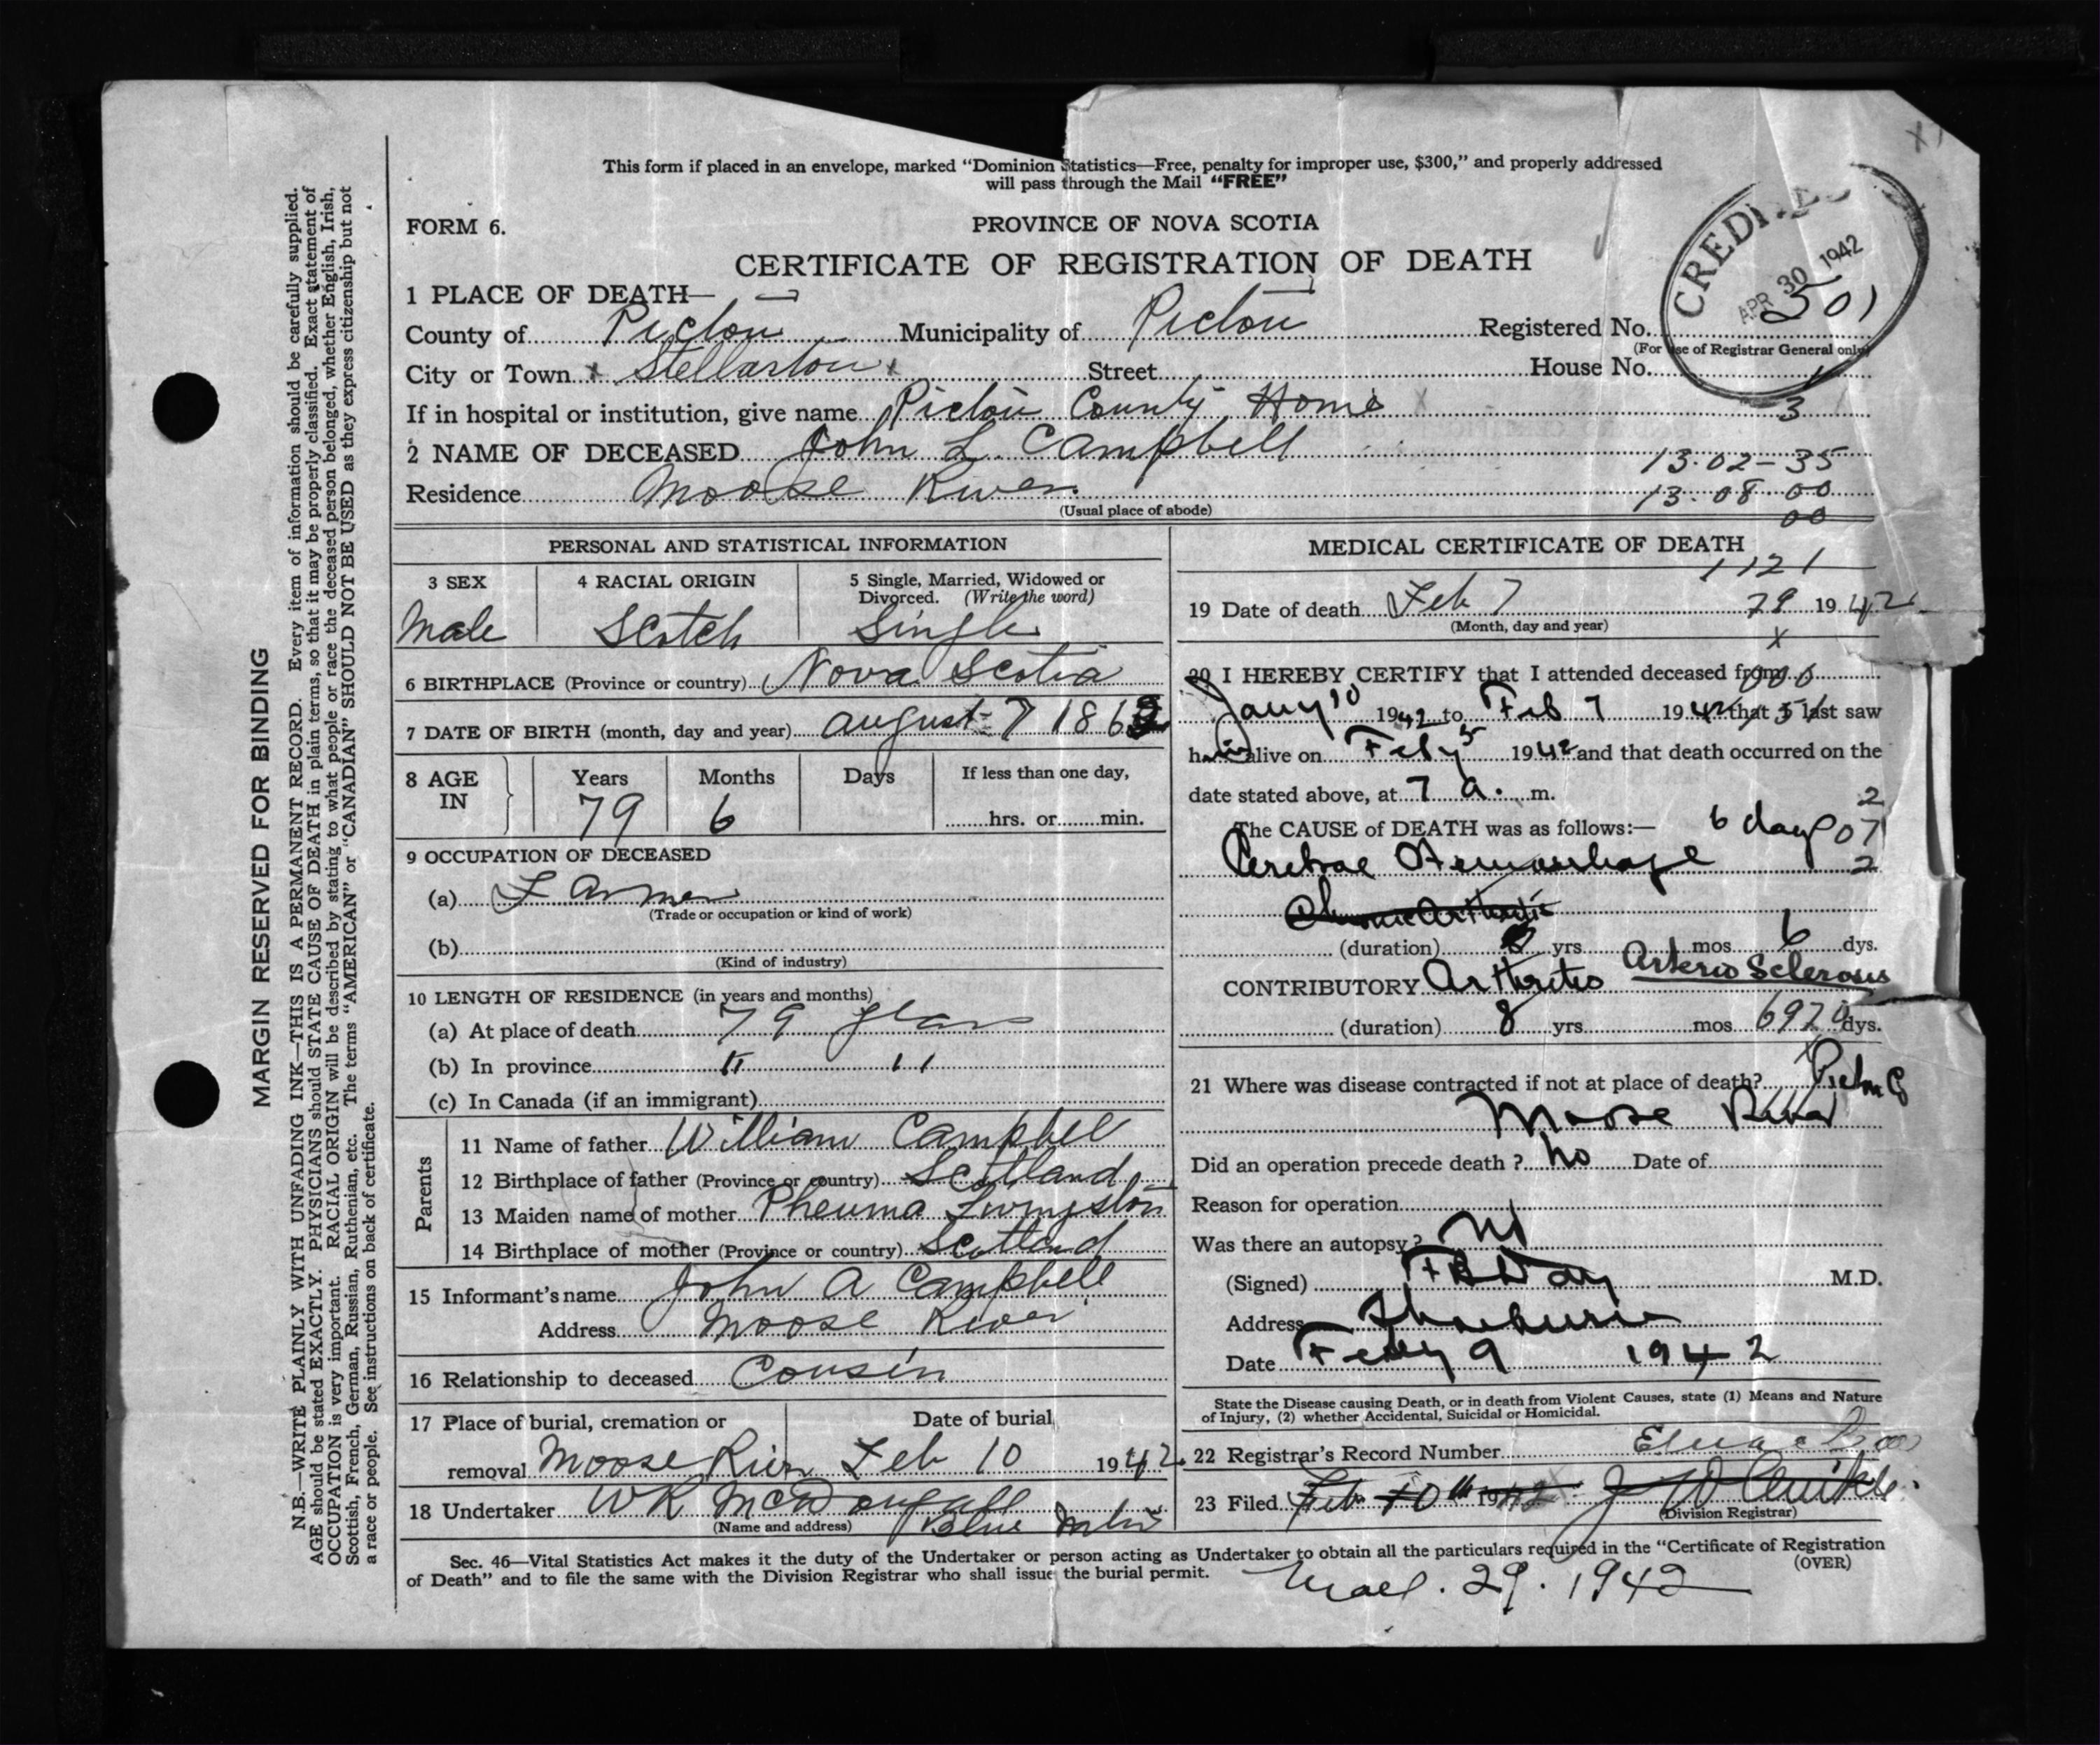 This form if placed in an envelope, marked “Dominion Statistics—Free, penalty for improper use, $300,” and properly addressed
will pass through the Mail “FREE”
FORM 6.
PROVINCE OF NOVA SCOTIA
CERTIFICATE OF REGISTRATION OF DEATH
CREDITED
APR 30 1942
501
1 PLACE OF DEATH—
County of Pictou Municipality of Pictou Registered No.
(For use of Registrar General only)
City or Town x Stellarton x Street House No.
If in hospital or institution, give name Pictou County Home x 3
2 NAME OF DECEASED John L. Campbell
13.02-35
Residence Moose River
13.08.00
(Usual place of abode)
00
PERSONAL AND STATISTICAL INFORMATION
3 SEX
Male
4 RACIAL ORIGIN
Scotch
5 Single, Married, Widowed or
Divorced. (Write the word)
Single
6 BIRTHPLACE (Province or country) Nova Scotia
7 DATE OF BIRTH (month, day and year) August 7 1862
8 AGE IN
Years
79
Months
6
Days
If less than one day,
hrs. or min.
9 OCCUPATION OF DECEASED
(a) Farmer
(Trade or occupation or kind of work)
(b)
(Kind of industry)
10 LENGTH OF RESIDENCE (in years and months)
(a) At place of death 79 years
(b) In province " "
(c) In Canada (if an immigrant)
Parents
11 Name of father William Campbel
12 Birthplace of father (Province or country) Scotland
13 Maiden name of mother Pheuma Livingston
14 Birthplace of mother (Province or country) Scotland
15 Informant's name John A Campbell
Address Moose River
16 Relationship to deceased Cousin
17 Place of burial, cremation or
Date of burial
removal Moose River Feb 10 1942
18 Undertaker W R McDougall
(Name and address) Blue Mtn
MEDICAL CERTIFICATE OF DEATH
1121
19 Date of death Feb 7 79 1942
(Month, day and year)
x
20 I HEREBY CERTIFY that I attended deceased from 006
Jany 10 1942 to Feb 7 1942 that I last saw
him alive on Feby 5 1942 and that death occurred on the
date stated above, at 7 a. m.
2
The CAUSE of DEATH was as follows:— 6 days 07
Cerebrae Hemorrhage 2
Chronic Arthritis
(duration) yrs mos 6 dys.
CONTRIBUTORY Arthritis Arterio Sclerosis
(duration) 8 yrs mos 6970 dys.
21 Where was disease contracted if not at place of death? Pictou Co
Moose River
Did an operation precede death ? No Date of
Reason for operation
Was there an autopsy? No
(Signed) M.D.
Address
Date Feby 9 1942
State the Disease causing Death, or in death from Violent Causes, state (1) Means and Nature
of Injury, (2) whether Accidental, Suicidal or Homicidal.
22 Registrar's Record Number
23 Filed Feb 10th 1942
(Division Registrar)
Sec. 46—Vital Statistics Act makes it the duty of the Undertaker or person acting as Undertaker to obtain all the particulars required in the “Certificate of Registration
of Death” and to file the same with the Division Registrar who shall issue the burial permit.
(OVER)
29. 1942
MARGIN RESERVED FOR BINDING
N.B.—WRITE PLAINLY WITH UNFADING INK—THIS IS A PERMANENT RECORD. Every item of information should be carefully supplied.
AGE should be stated EXACTLY. PHYSICIANS should STATE CAUSE OF DEATH in plain terms, so that it may be properly classified. Exact statement of
OCCUPATION is very important. RACIAL ORIGIN will be described by stating to what people or race the deceased person belonged, whether English, Irish,
Scottish, French, German, Russian, Ruthenian, etc. The terms “AMERICAN” or “CANADIAN” SHOULD NOT BE USED as they express citizenship but not
a race or people. See instructions on back of certificate.